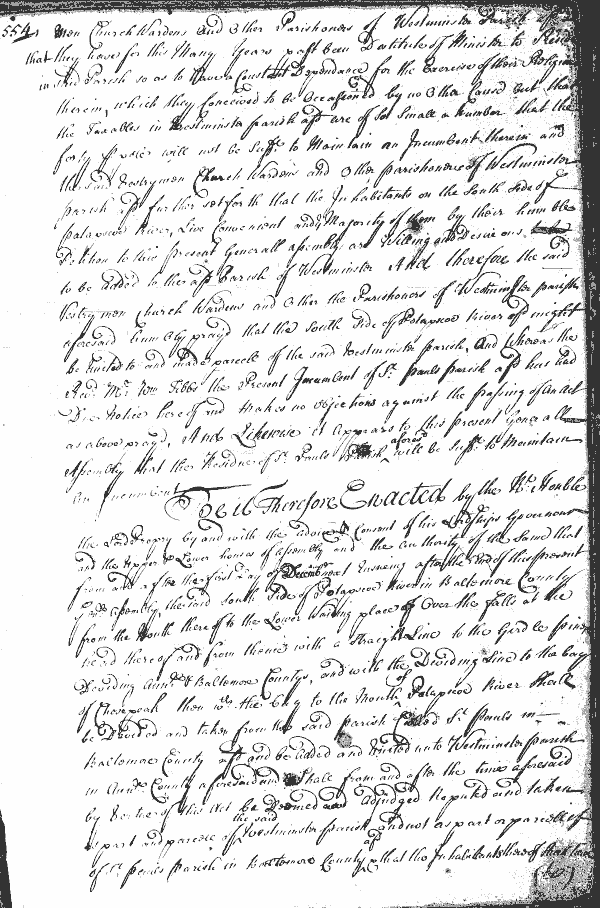 554
men Church Wardens and Other Parishoners of Westminster Parish
that they have for this Many Years past been Destitute of Minister to
in said Parish so as to have a Constant Dependance for the Exercise of their Religion
therein, which they conceived to be Occasioned by no Other Cause but that
the Taxables in Westminster parish afsd are of So Small a Number that the
forty pr poll will not be Suffr. to Maintain an Incumbent therein and
the said Vestrymen Church Wardens and Other parishoners of Westminster
parish afsd further set forth that the Inhabitants on the South Side of
Patapscoe River, Live Convenient and Majority of them by their humble
Petition to this present Generall assembly are Willing and Desirous
to be added to the afsd Parish of Westminster And therefore the said
Vestrymen Church Wardens and Other the Parishoners of Westminster parish
aforesaid humbly prayd that the South Side of Patapscoe River afsd might
be united to and made parcele of the said Westminster parish, And Whereas the
Revd. Mr. Wm Tibbs the Present Incumbent of St. Pauls parish afsd has had
Due Notice hereof and makes no objections against the passing of an Act
as above prayd, And Likewise it appears to this present Generall
Assembly that the Residue of St. Pauls Parish aforesd will be Suffr. to Maintain
an Incumbent
Be it Therefore Enacted by the Rt. Honble
the Lord Propry by and with the advice & Consent of his Lordships Governour
and the Upper & Lower houses of assembly and the authority of the Same that
from and after the first day of December next Ensuing after the End of this present
Assembly, the said South Side of Patapscoe River in Baltemore County
from the Mouth thereof to the Lower Wading place Over the falls at the
head thereof and from thence with a Straight Line to the
Deviding Anne & Baltemore Countys, and with the Dividing Line to the bay
of Chesepeak then wth. the bay to the Mouth of Patapscoe River Shall
be Devided and taken from the said parish Called St. Pauls in
Baltemore County afsd and be added and United unto Westminster parish
in Anne County aforesaid and Shall from and after the time aforesaid
by Vertue of this Act be Deemed adjudged Reputed and taken
as part and parcele of the said Westminster parish and not as part or parcele of
of St. Pauls Parish in Baltemore County afsd that the Inhabitants thereof